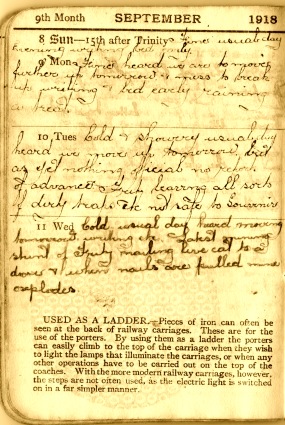 9th Month SEPTEMBER 1918
8 Sun—15th after Trinity Fine usual day
evening writing bed early
9 Mon Fine heard we are to move
further up tomorrow & mess to break
up writing & bed early raining
a treat.
10 Tues Cold & showery usual day
heard we move up tomorrow but
as yet nothing official no
of advance leaving all sorts
of dirty not safe to souvenir
11 Wed Cold usual day heard moving
tomorrow writing etc. Latest
stunt of nailing live cat to a
door & when nails are pulled mine
explodes
USED AS A LADDER.—Pieces of iron can often be
seen at the back of railway carriages. These are for the
use of the porters. By using them as a ladder the porters
can easily climb to the top of the carriage when they wish
to light the lamps that illuminate the carriages, or when any
other operations have to be carried out on the top of the
coaches. With the more modern railway carriages, however,
the steps are not often used, as the electric light is switched
on in a far simpler manner.